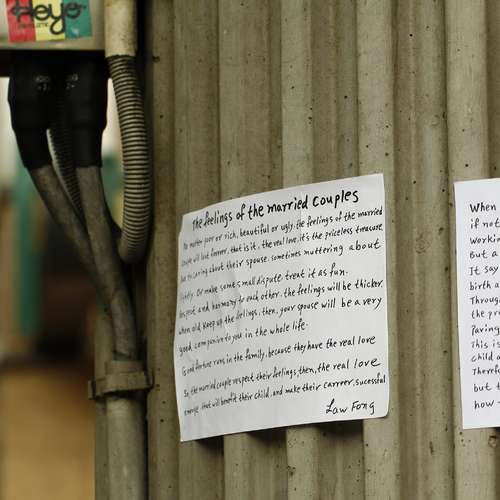 Heyo
The feelings of the married couples
No matter poor or rich, beautiful or ugly, the feelings of the married
couple will last forever, that is it, the real love, it's the priceless treasure
has to caring about their spouse, sometimes muttering about
lightly. Or make some small dispute, treat it as fun.
Respect and harmony to each other, the feelings will be thicker,
when old. Keep up the feelings, then, your spouse will be a very
good companion to you in the whole life.
and fortune runs in the family, because they have the real love
So, the married couple respect their feelings, then, the real love
emerge, that will benefit their child, and make their carreer, sucessful
Law Fong
When
if not
Workin
But a
It say
birth a
Throug
the pr
Paving
This is
child a
Therefo
but t
how